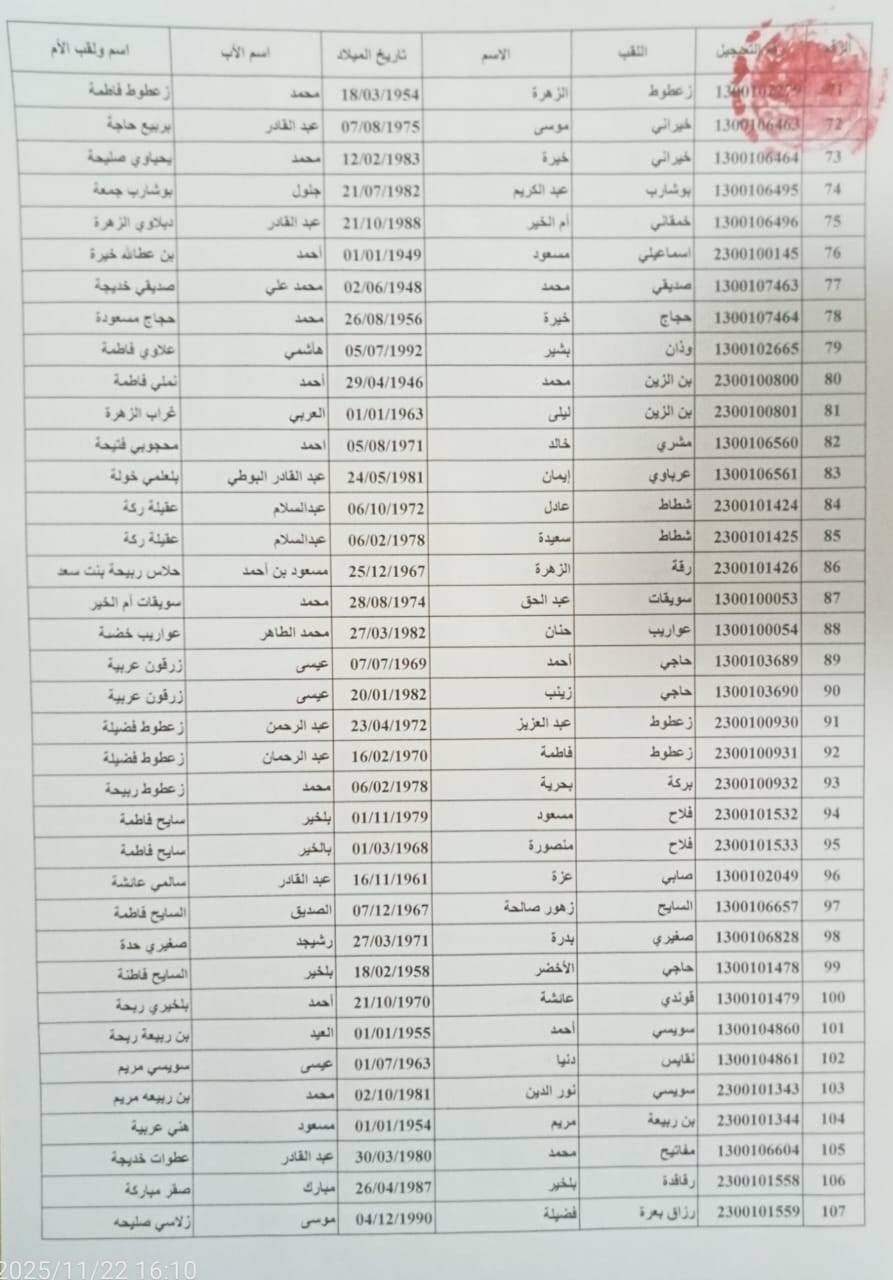 الرقم رقم التسجيل اللقب الاسم تاريخ الميلاد اسم الأب اسم ولقب الأم
71 زعطوط الزهرة 18/03/1954 محمد زعطوط فاطمة
72 1300106463 خيراني موسى 07/08/1975 عبد القادر بربيع حاجة
73 1300106464 خيراني خيرة 12/02/1983 محمد يحياوي صليحة
74 1300106495 بوشارب عبد الكريم 21/07/1982 جلول بوشارب جمعة
75 1300106496 خمقاني أم الخير 21/10/1988 عبد القادر دبلاوي الزهرة
76 2300100145 اسماعيلي مسعود 01/01/1949 أحمد بن عطالله خيرة
77 1300107463 صديقي محمد 02/06/1948 محمد علي صديقي خديجة
78 1300107464 حجاج خيرة 26/08/1956 محمد حجاج مسعودة
79 1300102665 وذان بشير 05/07/1992 هاشمي علاوي فاطمة
80 2300100800 بن الزين محمد 29/04/1946 أحمد نملي فاطمة
81 2300100801 بن الزين ليلى 01/01/1963 العربي غراب الزهرة
82 1300106560 مشري خالد 05/08/1971 احمد محجوبي فتيحة
83 1300106561 عرباوي إيمان 24/05/1981 عبد القادر البوطي بلعلمي خولة
84 2300101424 شطاط عادل 06/10/1972 عبدالسلام عقيلة ركة
85 2300101425 شطاط سعيدة 06/02/1978 عبدالسلام عقيلة ركة
86 2300101426 رقة الزهرة 25/12/1967 مسعود بن أحمد حلاس ربيحة بنت سعد
87 1300100053 سويقات عبد الحق 28/08/1974 محمد سويقات أم الخير
88 1300100054 عواريب حنان 27/03/1982 محمد الطاهر عواريب خضنة
89 1300103689 حاجي أحمد 07/07/1969 عيسى زرقون عربية
90 1300103690 حاجي زينب 20/01/1982 عيسى زرقون عربية
91 2300100930 زعطوط عبد العزيز 23/04/1972 عبد الرحمن زعطوط فضيلة
92 2300100931 زعطوط فاطمة 16/02/1970 عبد الرحمان زعطوط فضيلة
93 2300100932 بركة بحرية 06/02/1978 محمد زعطوط ربيحة
94 2300101532 فلاح مسعود 01/11/1979 بلخير سايح فاطمة
95 2300101533 فلاح منصورة 01/03/1968 بالخير سايح فاطمة
96 1300102049 صابي عزة 16/11/1961 عبد القادر سالمي عائشة
97 1300106657 السايح زهور صالحة 07/12/1967 الصديق السايح فاطمة
98 1300106828 صغيري بدرة 27/03/1971 رشيجد صغيري حدة
99 1300101478 حاجي الأخضر 18/02/1958 بلخير السايح فاطنة
100 1300101479 قوندي عائشة 21/10/1970 أحمد بلخيري ربحة
101 1300104860 سويسي أحمد 01/01/1955 العيد بن ربيعة ربحة
102 1300104861 نقايس دنيا 01/07/1963 عيسى سويسي مريم
103 2300101343 سويسي نور الدين 02/10/1981 محمد بن ربيعه مريم
104 2300101344 بن ربيعة مريم 01/01/1954 مسعود هني عربية
105 1300106604 مفاتيح محمد 30/03/1980 عبد القادر عطوات خديجة
106 2300101558 رقاقدة بلخير 26/04/1987 مبارك صقر مباركة
107 2300101559 رزاق بعرة فضيلة 04/12/1990 موسى زلاسي صليحه
2025/11/22 16:10